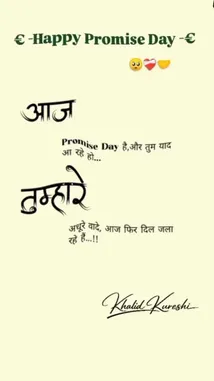 € -Happy Promise Day -€
🥺❤️‍🩹🤝
आज
Promise Day है,और तुम याद
आ रहे हो...
तुम्हारे
अधूरे वादे, आज फिर दिल जला
रहे हैं...!!
Khalid Kureshi